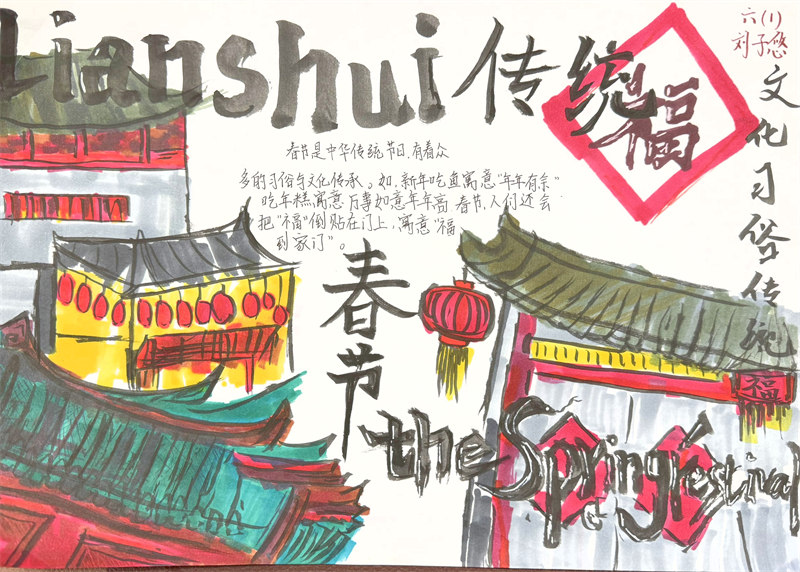 Lianshui 传统
福
六(1)
刘子悠
文化习俗传统
春节是中华传统节日,有着众
多的习俗与文化传承。如,新年吃鱼寓意"年年有余"
吃年糕寓意万事如意年年高 春节,人们还会
把"福"倒贴在门上,寓意"福
到家门"。
春节
福
the Spring festival